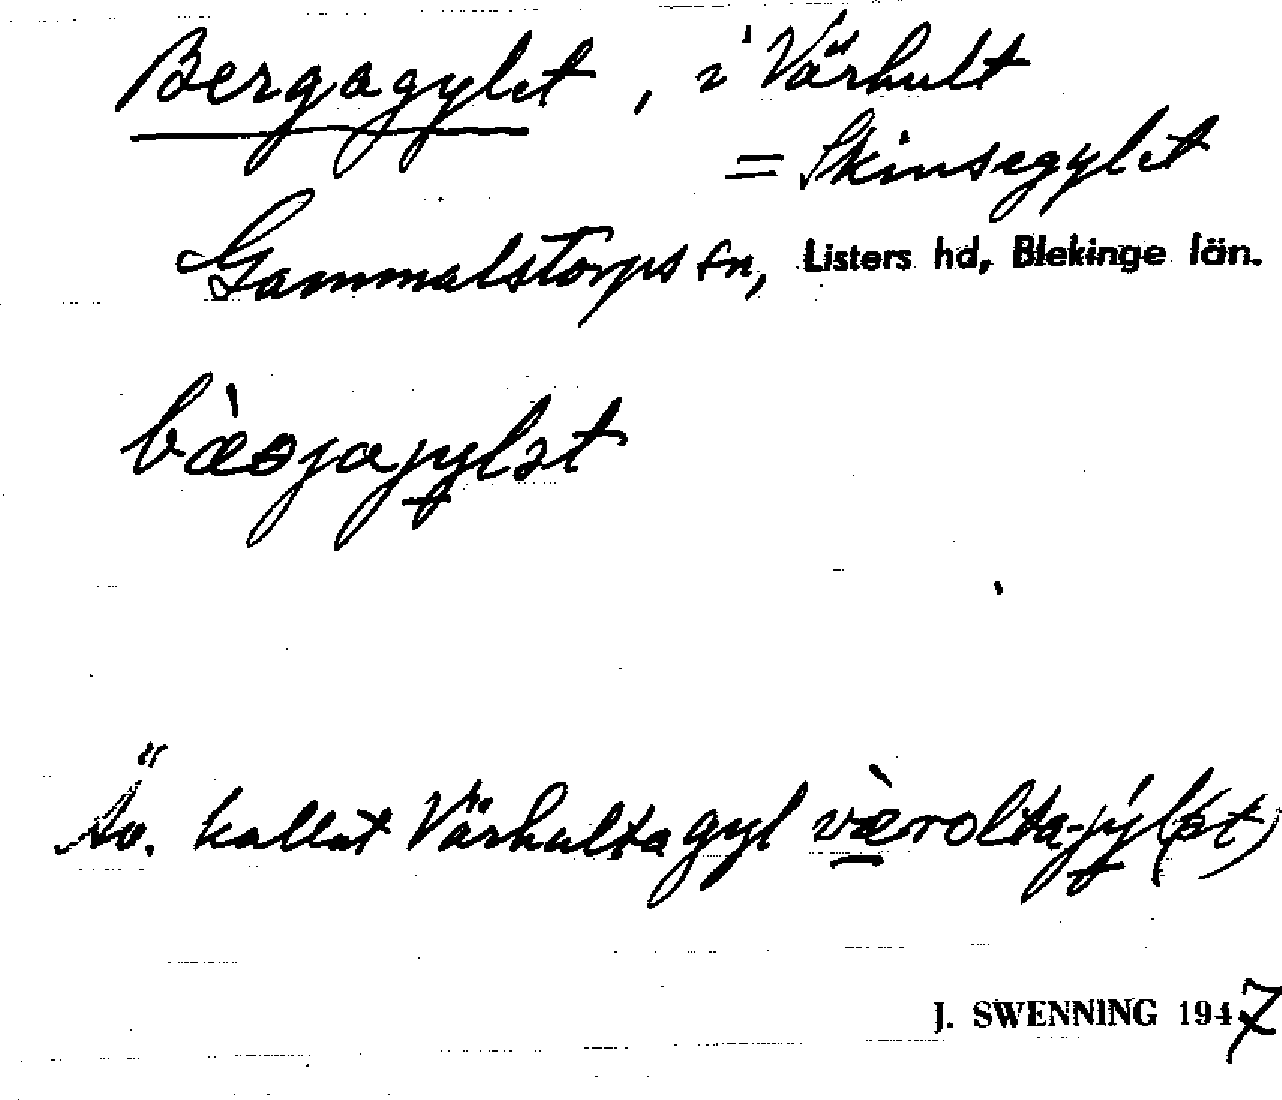 Bergagylet, i Värhult
= Skinsegylet
Gammalstorps sn, Listers hd, Blekinge län.
bæ̀ɔjajylət
Äv. kallat Värhultagyl væ̀rolta-jýl(ət)
J. SWENNING 1947